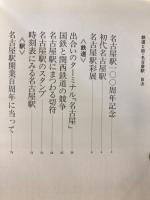 鉄道と街・名古屋駅 目次
名古屋駅一〇〇周年記念
初代名古屋駅
名古屋駅彩展
〈鉄道〉
出合いのターミナル「名古屋」
国鉄と関西鉄道の競争
名古屋駅にまつわる切符
名古屋駅のスタンプ
時刻表にみる名古屋駅
〈駅〉
名古屋駅開業百周年に当って